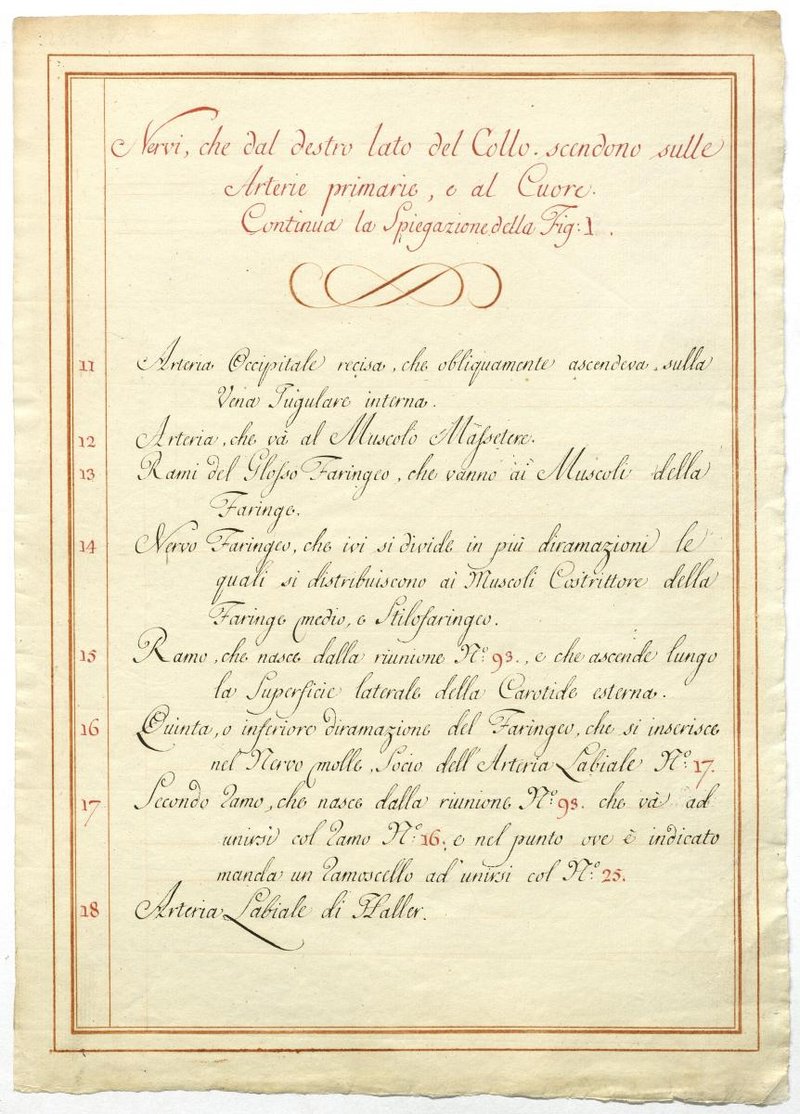 Nervi, che dal destro lato del Collo. scendono sulle
Arterie primarie, e al Cuore.
Continua la Spiegazione della Fig: 1.
11 Arteria Occipitale recisa, che obliquamente ascendeva sulla
Vena Iugulare interna.
12 Arteria, che và al Muscolo Massetere.
13 Rami del Glosso Faringeo, che vanno ai Muscoli della
Faringe.
14 Nervo Faringeo, che ivi si divide in più diramazioni le
quali si distribuiscono ai Muscoli Costrittore della
Faringe medio, e Stilofaringeo.
15 Ramo, che nasce dalla riunione N.º 93., e che ascende lungo
la Superficie laterale della Carotide esterna.
16 Quinta, o inferiore diramazione del Faringeo, che si inserisce
nel Nervo molle, Socio dell'Arteria Labiale N.º 17.
17 Secondo Ramo, che nasce dalla riunione N.º 93. che và ad
unirsi col Ramo N.º 16. e nel punto ove è indicato
manda un Ramoscello ad unirsi col N.º 25.
18 Arteria Labiale di Haller.